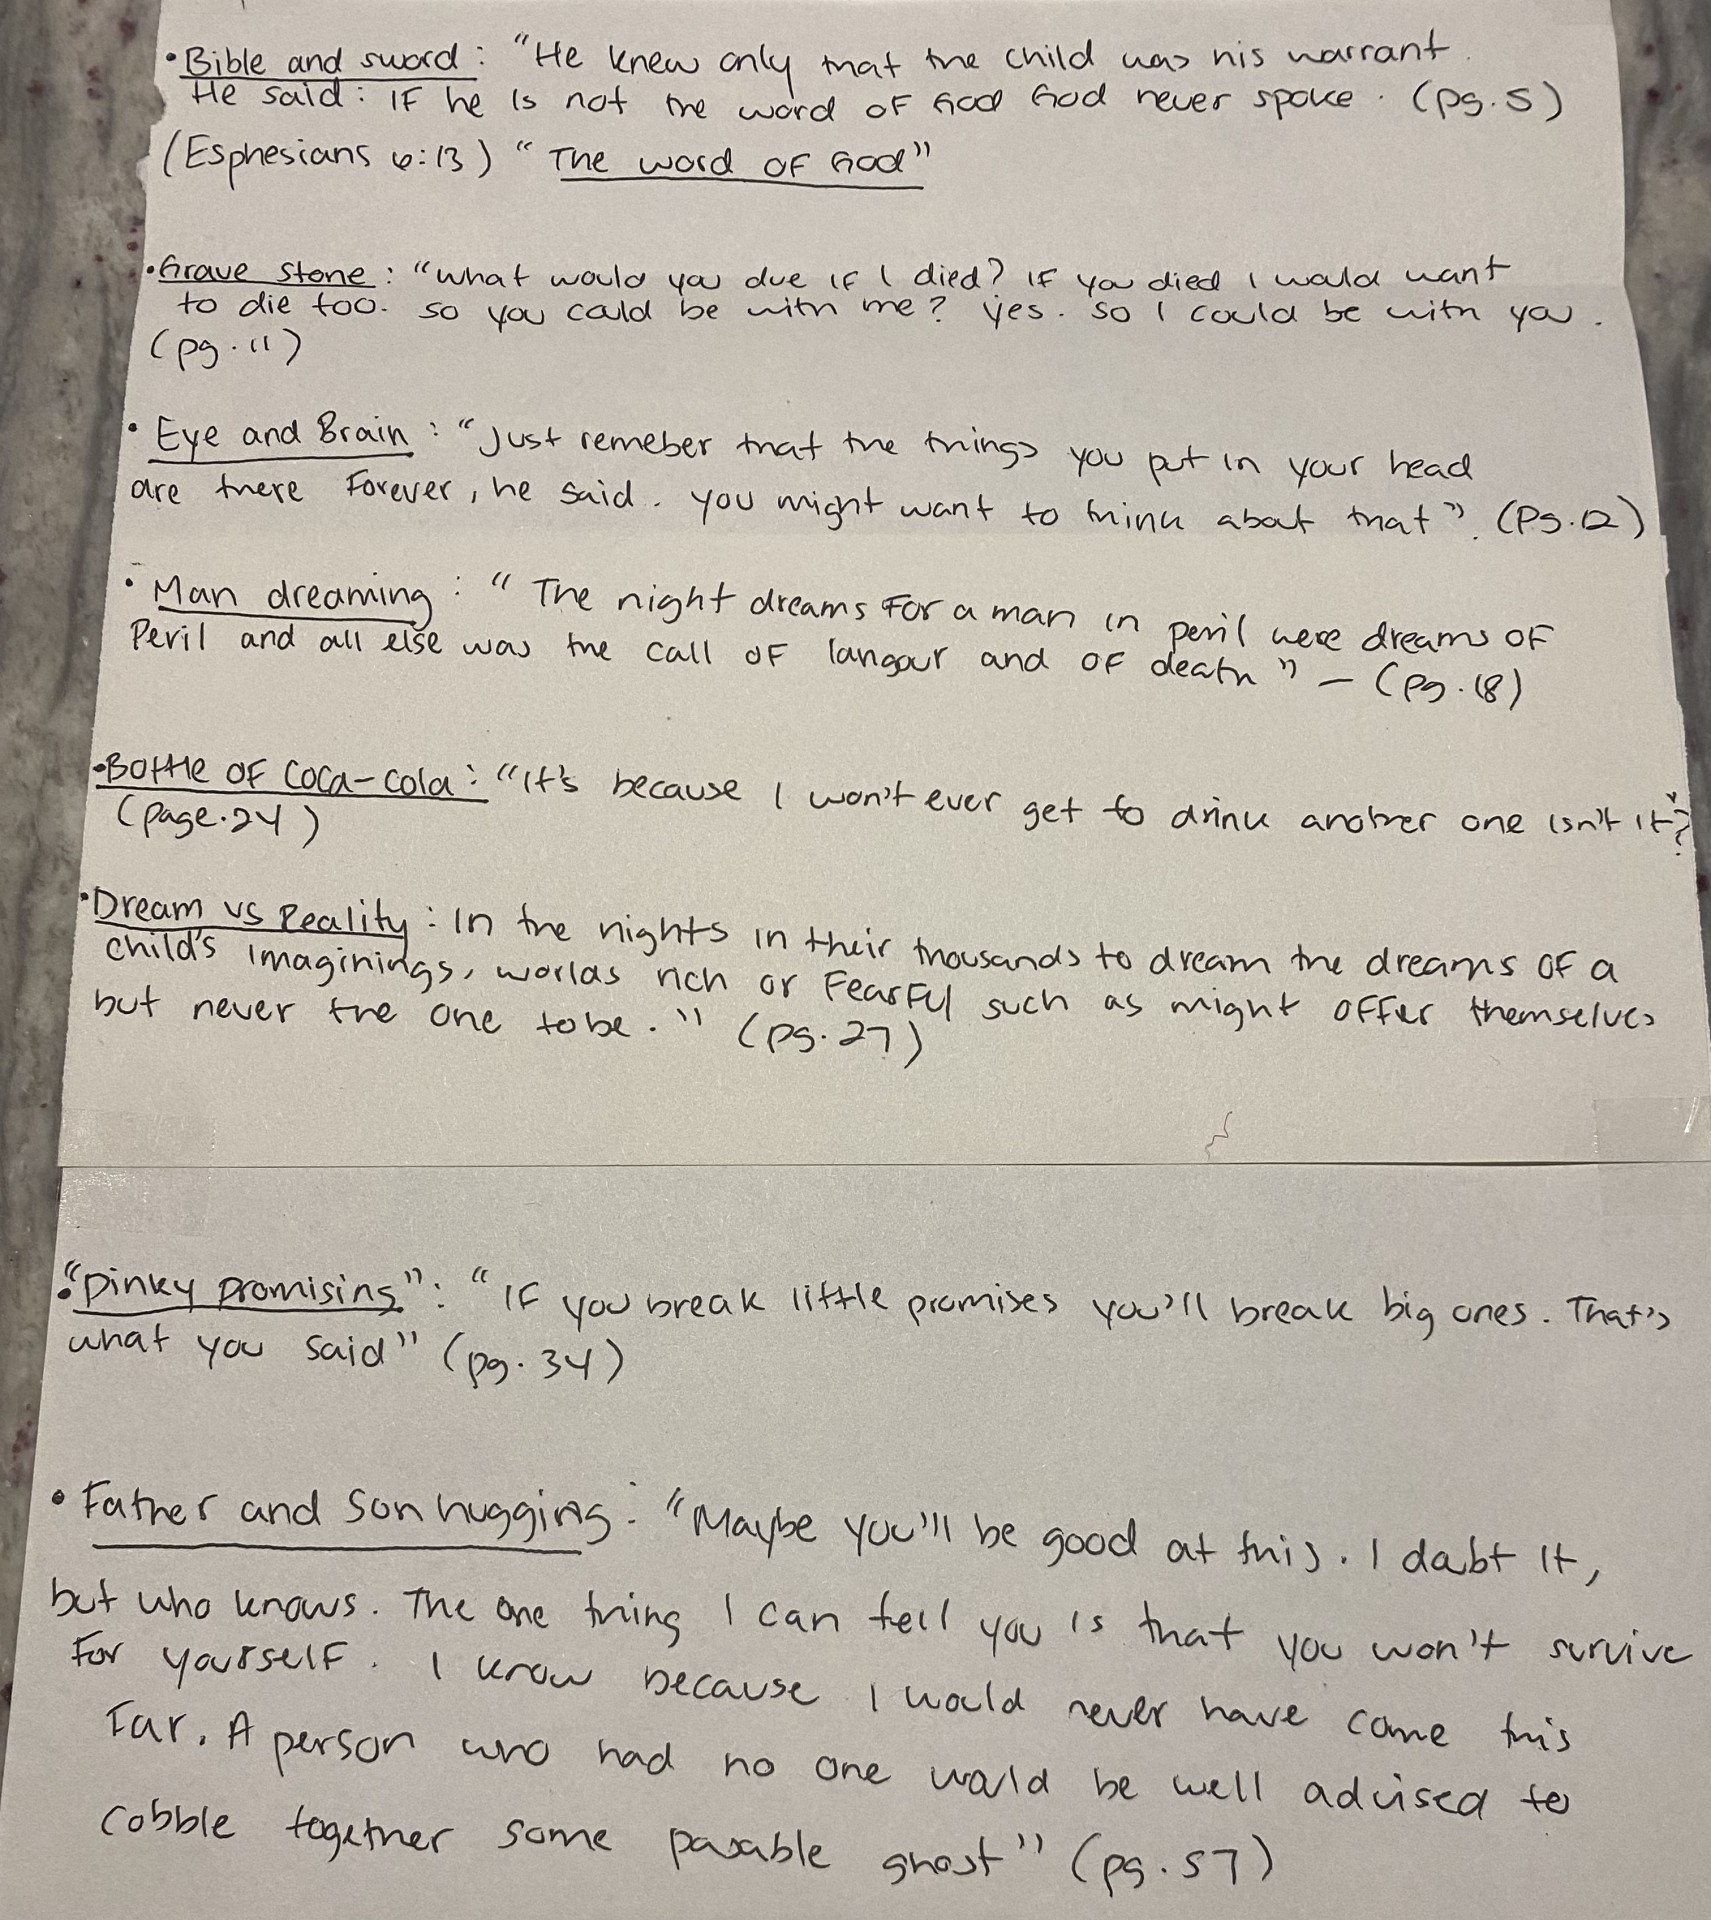 • Bible and sword: "He knew only that the child was his warrant.
He said: IF he is not the word of God God never spoke. (pg.5)
(Esphesians 6:13) "The word of God"
• Grave stone: "what would you due if I died? if you died I would want
to die too. so you could be with me? yes. so I could be with you.
(pg.11)
• Eye and Brain: "Just remeber that the things you put in your head
are there Forever, he said. you might want to think about that". (Pg.12)
• Man dreaming: "The night dreams For a man in peril were dreams of
Peril and all else was the call of langour and of death" – (pg.18)
• Bottle of Coca-Cola: "It's because I won't ever get to drink another one isn't it"?
(page.24)
• Dream vs Reality: In the nights in their thousands to dream the dreams of a
child's imaginings, worlds rich or Fearful such as might offer themselves
but never the one to be." (pg.27)
• "pinky promising": "IF you break little promises you'll break big ones. That's
what you said" (pg.34)
• Father and Son hugging: "Maybe you'll be good at this. I dabt it,
but who knows. The one thing I can tell you is that you won't survive
For yourself. I know because I would never have come this
Far. A person who had no one would be well advised to
cobble together some pasable ghost" (pg.57)